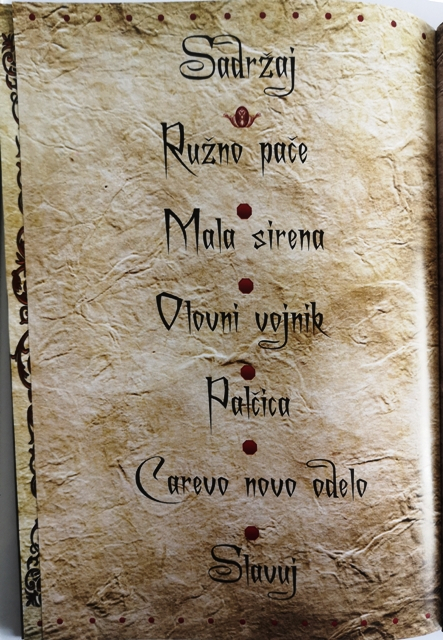 Sadržaj
Ružno pače
Mala sirena
Olovni vojnik
Palčica
Carevo novo odelo
Slavuj